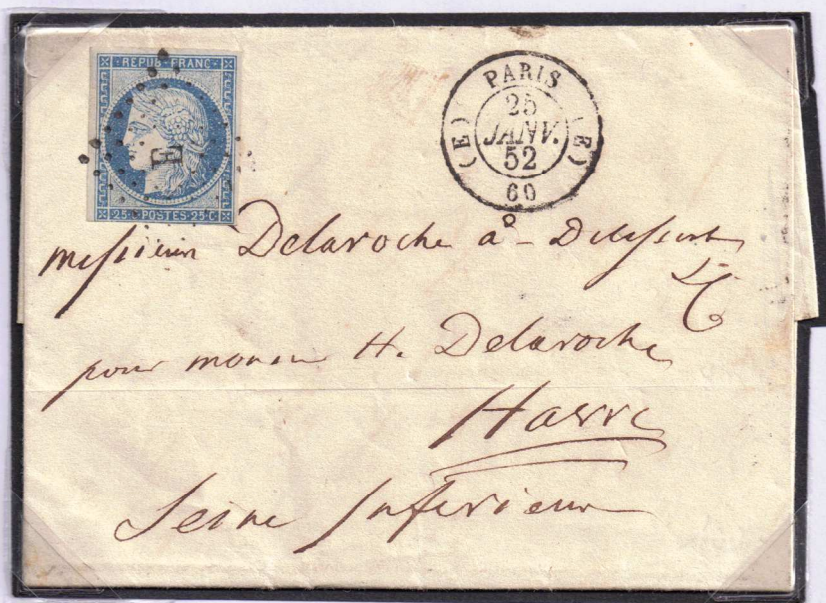 REPUB·FRANC·
E
25c POSTES 25c
PARIS
(E) 25 (E)
JANV.
52
60
messieurs Delaroche
pour monsieur H. Delaroche
Havre
Seine Inferieure